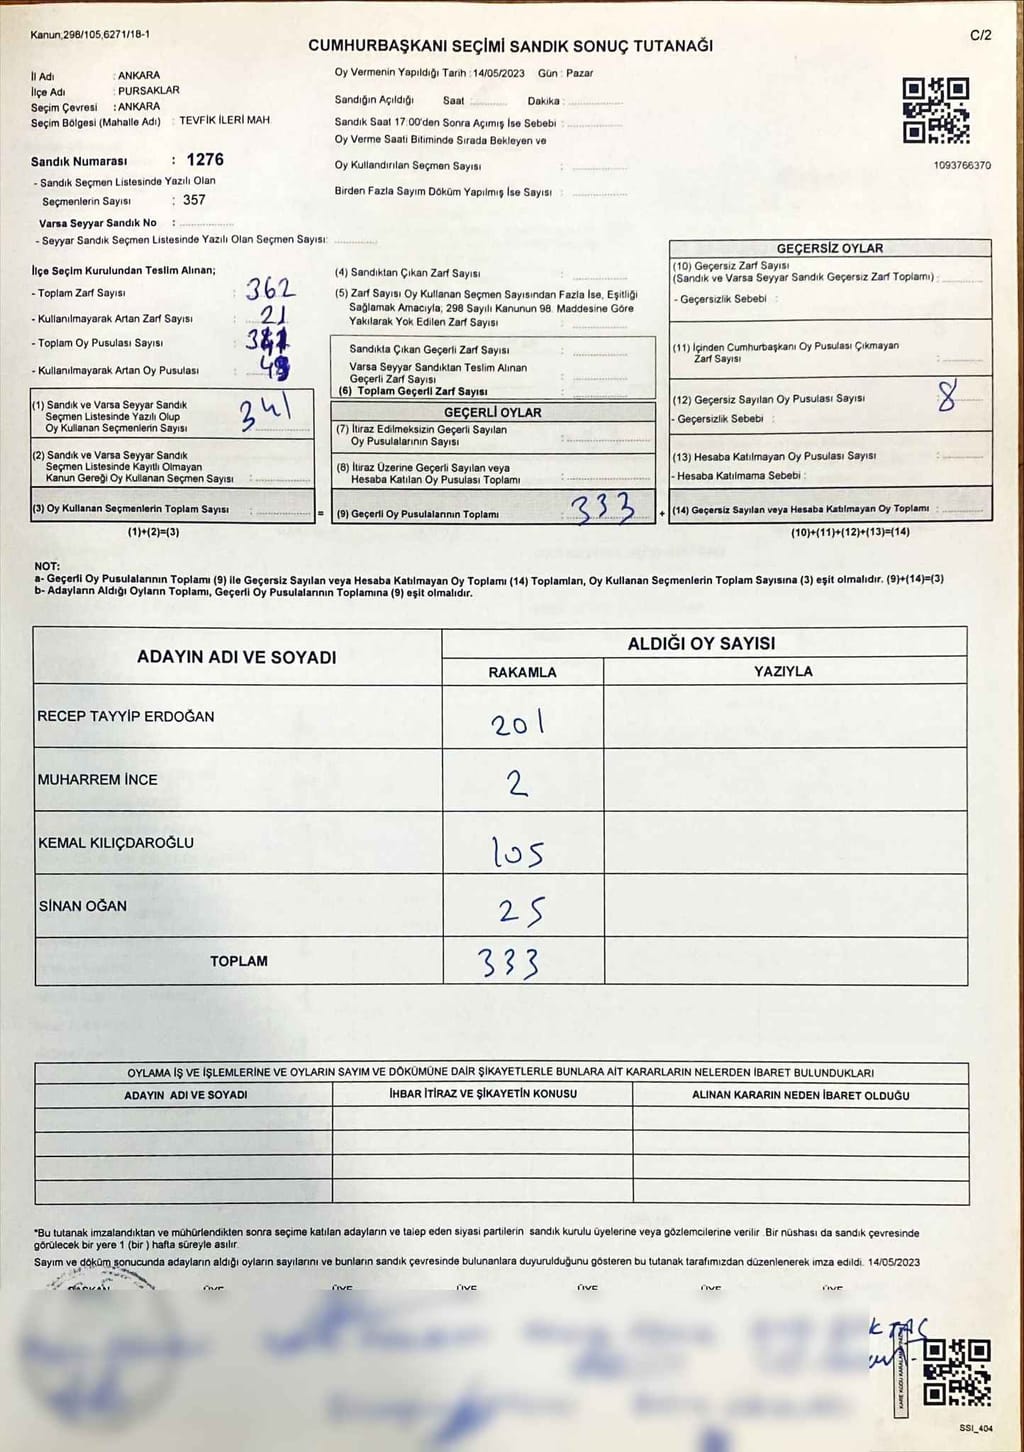 Kanun,298/105,6271/18-1
C/2
CUMHURBAŞKANI SEÇİMİ SANDIK SONUÇ TUTANAĞI
İl Adı : ANKARA
İlçe Adı : PURSAKLAR
Seçim Çevresi : ANKARA
Seçim Bölgesi (Mahalle Adı) : TEVFİK İLERİ MAH
Sandık Numarası : 1276
- Sandık Seçmen Listesinde Yazılı Olan
Seçmenlerin Sayısı : 357
Varsa Seyyar Sandık No :
- Seyyar Sandık Seçmen Listesinde Yazılı Olan Seçmen Sayısı:
Oy Vermenin Yapıldığı Tarih : 14/05/2023 Gün : Pazar
Sandığın Açıldığı Saat : Dakika :
Sandık Saat 17.00'den Sonra Açımış İse Sebebi :
Oy Verme Saati Bitiminde Sırada Bekleyen ve
Oy Kullandırılan Seçmen Sayısı :
Birden Fazla Sayım Döküm Yapılmış İse Sayısı :
1093766370
İlçe Seçim Kurulundan Teslim Alınan;
- Toplam Zarf Sayısı : 362
- Kullanılmayarak Artan Zarf Sayısı : 21
- Toplam Oy Pusulası Sayısı :
- Kullanılmayarak Artan Oy Pusulası :
(1) Sandık ve Varsa Seyyar Sandık
Seçmen Listesinde Yazılı Olup
Oy Kullanan Seçmenlerin Sayısı : 341
(2) Sandık ve Varsa Seyyar Sandık
Seçmen Listesinde Kayıtlı Olmayan
Kanun Gereği Oy Kullanan Seçmen Sayısı :
(3) Oy Kullanan Seçmenlerin Toplam Sayısı :
(1)+(2)=(3)
(4) Sandıktan Çıkan Zarf Sayısı :
(5) Zarf Sayısı Oy Kullanan Seçmen Sayısından Fazla İse, Eşitliği
Sağlamak Amacıyla, 298 Sayılı Kanunun 98. Maddesine Göre
Yakılarak Yok Edilen Zarf Sayısı :
Sandıkta Çıkan Geçerli Zarf Sayısı :
Varsa Seyyar Sandıktan Teslim Alınan
Geçerli Zarf Sayısı :
(6) Toplam Geçerli Zarf Sayısı :
GEÇERLİ OYLAR
(7) İtiraz Edilmeksizin Geçerli Sayılan
Oy Pusulalarının Sayısı :
(8) İtiraz Üzerine Geçerli Sayılan veya
Hesaba Katılan Oy Pusulası Toplamı :
= (9) Geçerli Oy Pusulalarının Toplamı : 333 +
GEÇERSİZ OYLAR
(10) Geçersiz Zarf Sayısı
(Sandık ve Varsa Seyyar Sandık Geçersiz Zarf Toplamı) :
- Geçersizlik Sebebi :
(11) İçinden Cumhurbaşkanı Oy Pusulası Çıkmayan
Zarf Sayısı :
(12) Geçersiz Sayılan Oy Pusulası Sayısı : 8
- Geçersizlik Sebebi :
(13) Hesaba Katılmayan Oy Pusulası Sayısı :
- Hesaba Katılmama Sebebi :
(14) Geçersiz Sayılan veya Hesaba Katılmayan Oy Toplamı :
(10)+(11)+(12)+(13)=(14)
NOT:
a- Geçerli Oy Pusulalarının Toplamı (9) ile Geçersiz Sayılan veya Hesaba Katılmayan Oy Toplamı (14) Toplamları, Oy Kullanan Seçmenlerin Toplam Sayısına (3) eşit olmalıdır. (9)+(14)=(3)
b- Adayların Aldığı Oyların Toplamı, Geçerli Oy Pusulalarının Toplamına (9) eşit olmalıdır.
ADAYIN ADI VE SOYADI
ALDIĞI OY SAYISI
RAKAMLA YAZIYLA
RECEP TAYYİP ERDOĞAN 201
MUHARREM İNCE 2
KEMAL KILIÇDAROĞLU 105
SİNAN OĞAN 25
TOPLAM 333
OYLAMA İŞ VE İŞLEMLERİNE VE OYLARIN SAYIM VE DÖKÜMÜNE DAİR ŞİKAYETLERLE BUNLARA AİT KARARLARIN NELERDEN İBARET BULUNDUKLARI
ADAYIN ADI VE SOYADI İHBAR İTİRAZ VE ŞİKAYETİN KONUSU ALINAN KARARIN NEDEN İBARET OLDUĞU
*Bu tutanak imzalandıktan ve mühürlendikten sonra seçime katılan adayların ve talep eden siyasi partilerin sandık kurulu üyelerine veya gözlemcilerine verilir. Bir nüshası da sandık çevresinde
görülecek bir yere 1 (bir ) hafta süreyle asılır.
Sayım ve döküm sonucunda adayların aldığı oyların sayılarını ve bunların sandık çevresinde bulunanlara duyurulduğunu gösteren bu tutanak tarafımızdan düzenlenerek imza edildi. 14/05/2023
BAŞKAN ÜYE ÜYE ÜYE ÜYE ÜYE ÜYE
SSİ_404